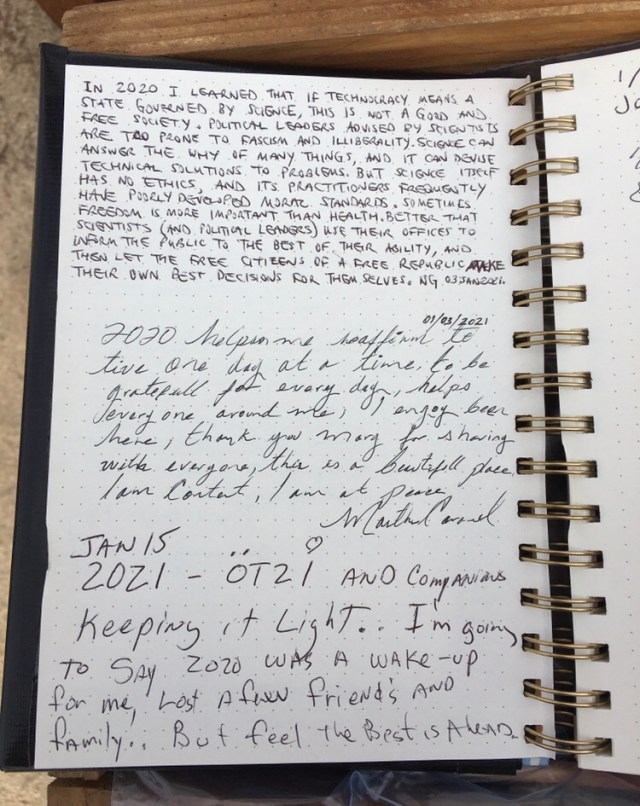 IN 2020 I LEARNED THAT IF TECHNOCRACY MEANS A
STATE GOVERNED BY SCIENCE, THIS IS NOT A GOOD AND
FREE SOCIETY. POLITICAL LEADERS ADVISED BY SCIENTISTS
ARE TOO PRONE TO FASCISM AND ILLIBERALITY. SCIENCE CAN
ANSWER THE WHY OF MANY THINGS, AND IT CAN DEVISE
TECHNICAL SOLUTIONS TO PROBLEMS. BUT SCIENCE ITSELF
HAS NO ETHICS, AND ITS PRACTITIONERS FREQUENTLY
HAVE POORLY DEVELOPED MORAL STANDARDS. SOMETIMES
FREEDOM IS MORE IMPORTANT THAN HEALTH. BETTER THAT
SCIENTISTS (AND POLITICAL LEADERS) USE THEIR OFFICES TO
INFORM THE PUBLIC TO THE BEST OF THEIR ABILITY, AND
THEN LET THE FREE CITIZENS OF A FREE REPUBLIC MAKE
THEIR OWN BEST DECISIONS FOR THEMSELVES. NG 03JAN2021.
01/03/2021
2020 me reaffirm to
live one day at a time, to be
gratefull for every day, helps
every one around me, I engoy been
here, thank you mary for sharing
with everyone, this is a beutifull place
I am Content, I am at peace
JAN 15
2021 - ÖT21 AND Companions
Keeping it Light.. I'm going
TO SAY 2020 WAS A WAKE-UP
for me, Lost A few friends AND
family.. But feel The Best is Ahead.